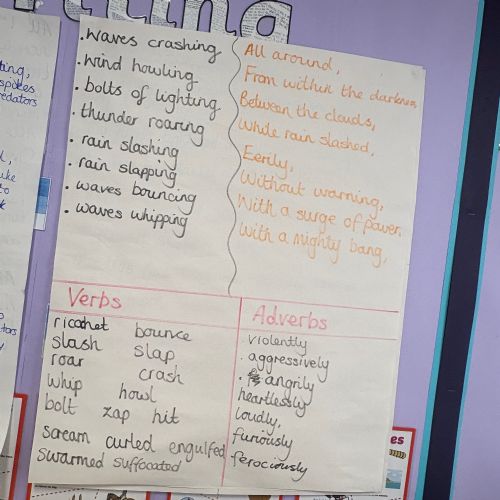 iting
. waves crashing
. wind howling
. bolts of lighting
. thunder roaring
. rain slashing
. rain slapping
. waves bouncing
. waves whipping
All around,
From within the darkness,
Between the clouds,
While rain slashed,
Eerily,
Without warning,
With a surge of power,
With a mighty bang,
Verbs
ricochet bounce
slash slap
roar crash
whip howl
bolt zap hit
scream curled engulfed
swarmed suffocated
Adverbs
. violently
. aggressively
. angrily
heartlessly
loudly,
furiously
ferociously
ting,
spokes
redators
es